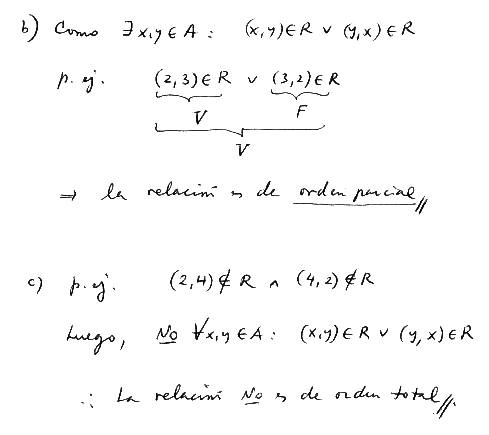 b) Como ∃x,y ∈ A : (x,y) ∈ R ∨ (y,x) ∈ R
p. ej. (2,3) ∈ R ∨ (3,2) ∈ R
V F
V
⇒ la relación es de orden parcial //
c) p. ej. (2,4) ∉ R ∧ (4,2) ∉ R
Luego, No ∀x,y ∈ A : (x,y) ∈ R ∨ (y,x) ∈ R
∴ La relación No es de orden total //.